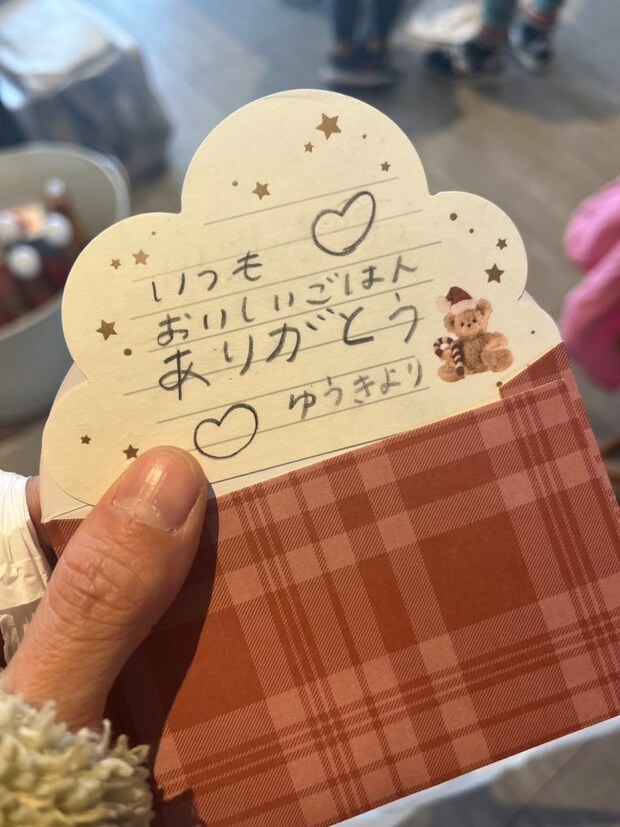 いつも
おいしいごはん
ありがとう
ゆうきより